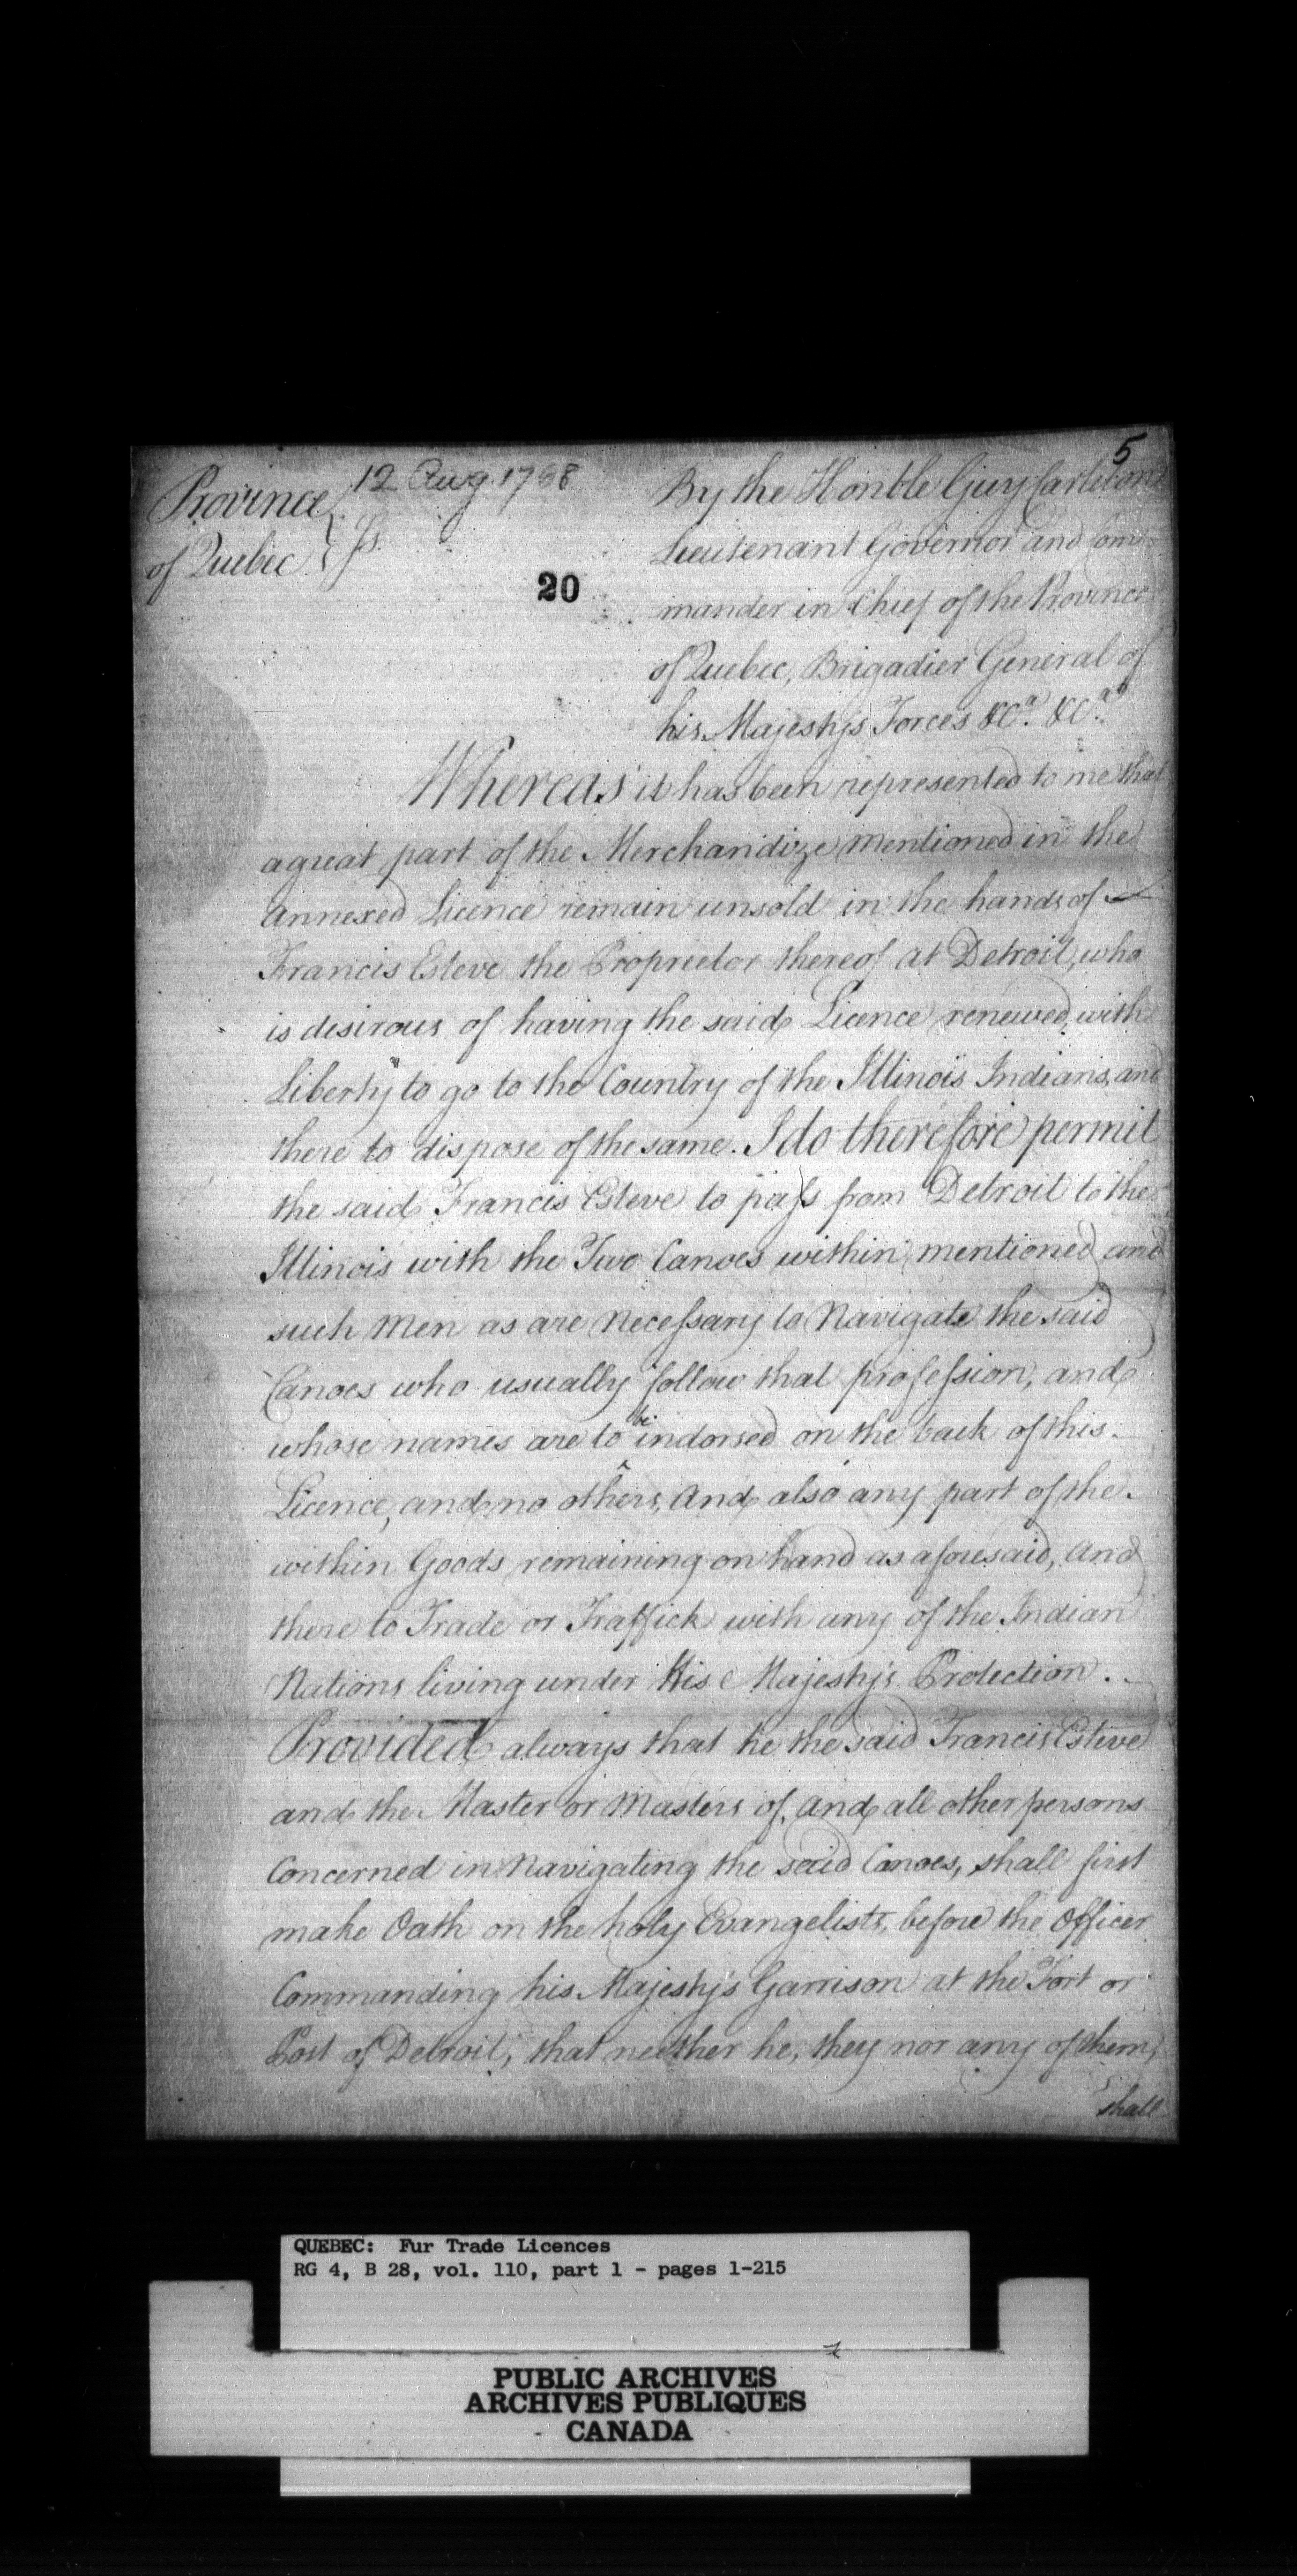 5
12 Aug. 1768
Province
of Quebec } Ss.
20
By the Honble Guy Carleton
Lieutenant Governor and Com-
mander in Chief of the Province
of Quebec, Brigadier General of
his Majesty's Forces &Ca. &Ca.
Whereas it has been represented to me that
a great part of the Merchandize mentioned in the
annexed Licence remain unsold in the hands of
Francis Esteve the Proprietor thereof at Detroit, who
is desirous of having the said Licence renewed, with
Liberty to go to the Country of the Illinois Indians, and
there to dispose of the same. I do therefore permit
the said Francis Esteve to pass from Detroit to the
Illinois with the Two Canoes within mentioned and
such Men as are Necessary to Navigate the said
Canoes who usually follow that profession, and
whose names are to be indorsed on the back of this
Licence, and no others, And also any part of the
within Goods remaining on hand as aforesaid, And
there to Trade or Traffick with any of the Indian
Nations living under His Majesty's Protection.
Provided always that he the said Francis Esteve
and the Master or Masters of, and all other persons
Concerned in Navigating the said Canoes, shall first
make Oath on the holy Evangelists, before the Officer
Commanding his Majesty's Garrison at the Fort or
Post of Detroit, that neither he, they nor any of them,
shall
QUEBEC: Fur Trade Licences
RG 4, B 28, vol. 110, part 1 - pages 1-215
PUBLIC ARCHIVES
ARCHIVES PUBLIQUES
CANADA